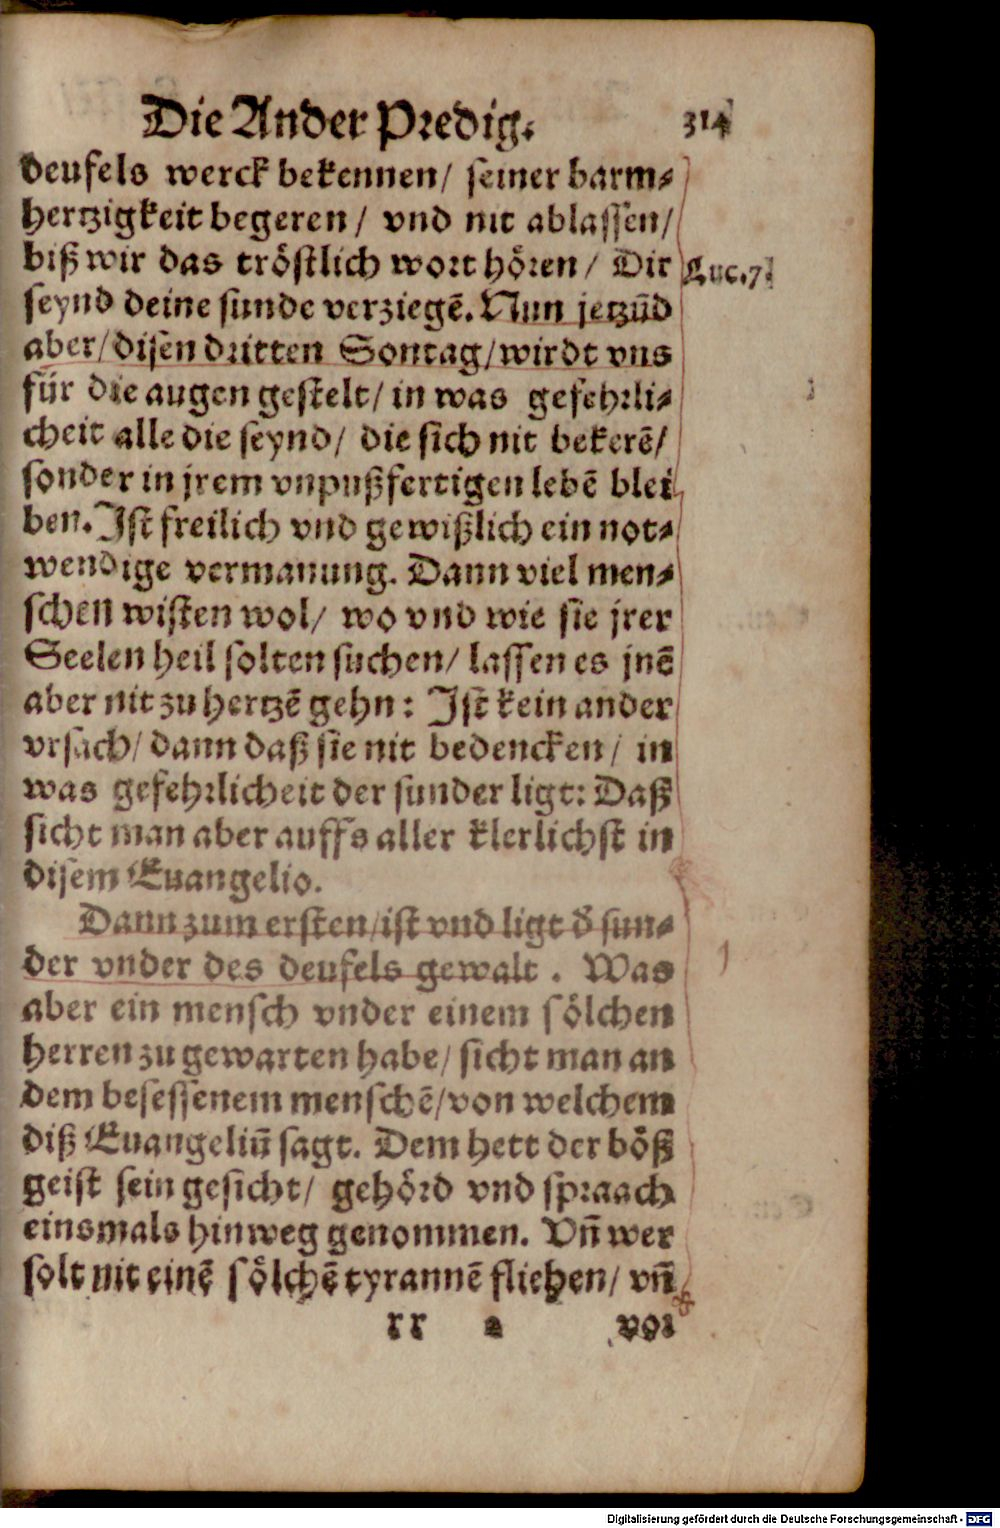 Die Ander Predig. 314
deufels werck bekennen/ seiner barm⸗
hertzigkeit begeren/ vnd nit ablassen/
biß wir das tröstlich wort hören/ Dir Luc.7.
seynd deine sunde verziegē. Nun jetzūd
aber/disen dritten Sontag/wirdt vns
für die augen gestelt/ in was gefehrli⸗
cheit alle die seynd/ die sich nit bekerē/
sonder in jrem vnpußfertigen lebē blei
ben. Ist freilich vnd gewißlich ein not⸗
wendige vermanung. Dann viel men⸗
schen wisten wol/ wo vnd wie sie jrer
Seelen heil solten suchen/ lassen es jnē
aber nit zu hertzē gehn: Ist kein ander
vrsach/ dann daß sie nit bedencken/ in
was gefehrlicheit der sunder ligt: Daß
sicht man aber auffs aller klerlichst in
disem Euangelio.
Dann zum ersten/ist vnd ligt d̄ sun⸗
der vnder des deufels gewalt. Was
aber ein mensch vnder einem sölchen
herren zu gewarten habe/ sicht man an
dem besessenem menschē/von welchem
diß Euangeliū sagt. Dem hett der böß
geist sein gesicht/ gehörd vnd spraach
einsmals hinweg genommen. Vñ wer
solt nit einē sölchē tyrannē fliehen/ vñ
rr a vor
Digitalisierung gefördert durch die Deutsche Forschungsgemeinschaft - DFG